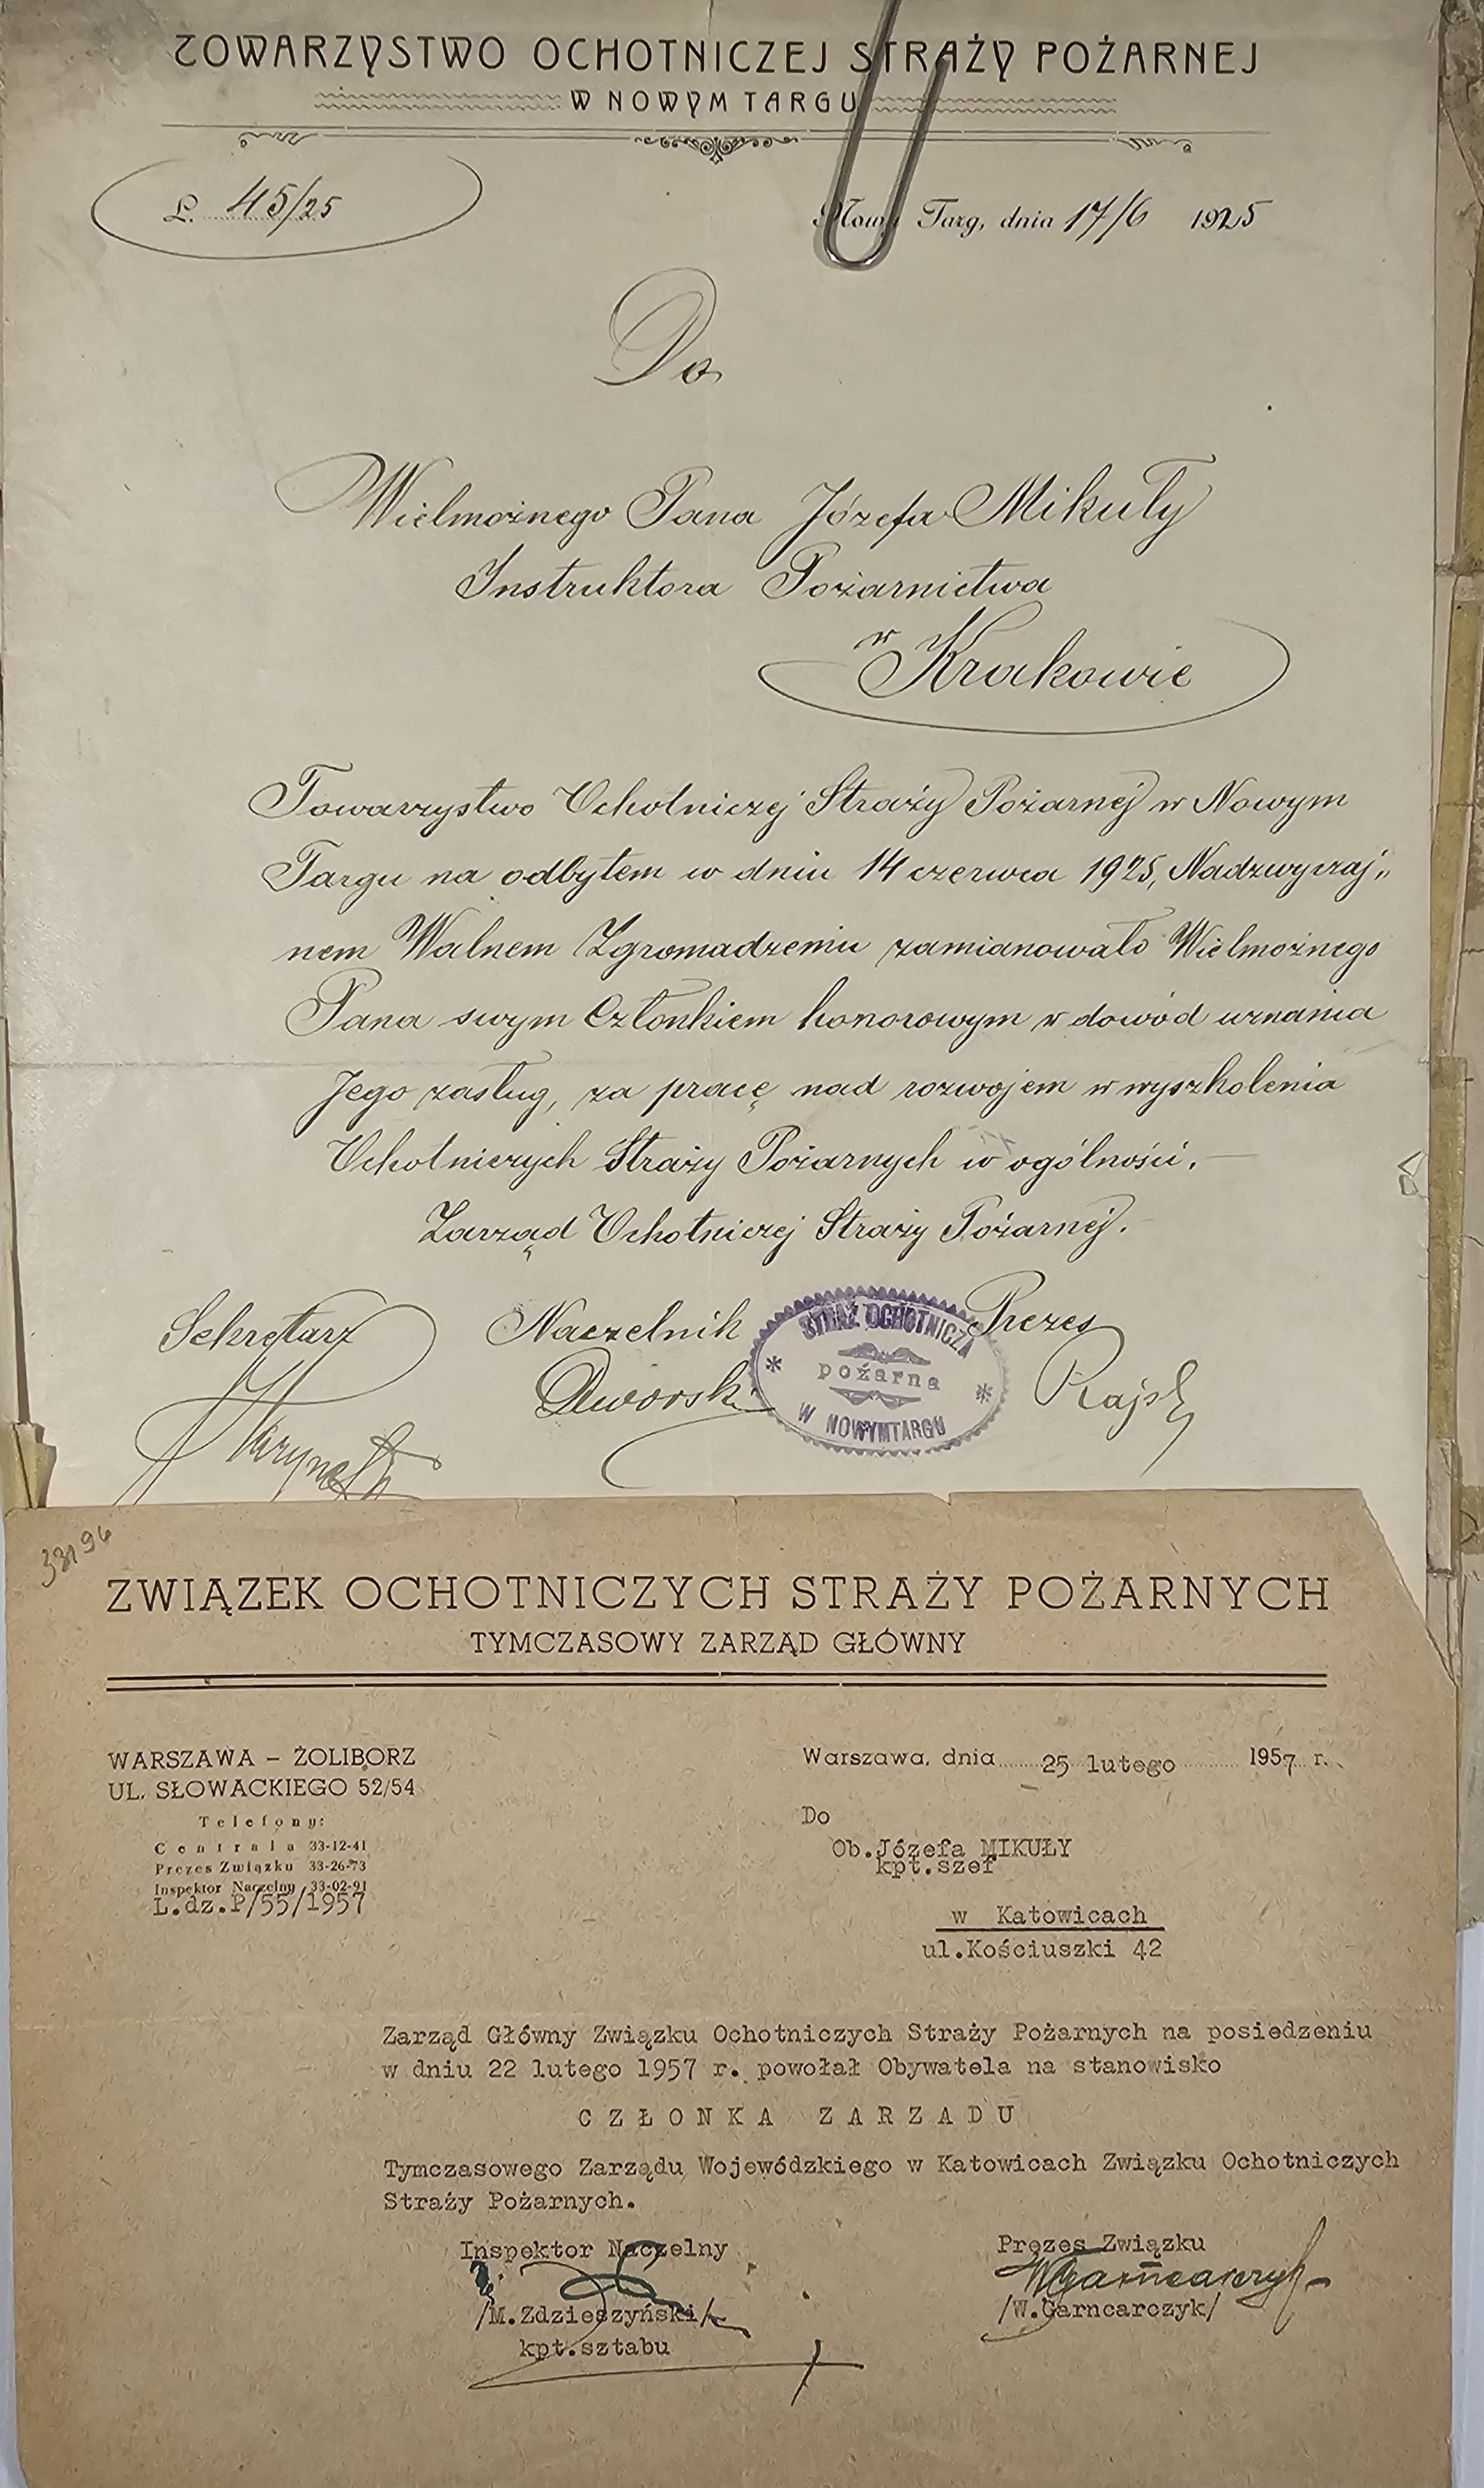 TOWARZYSTWO OCHOTNICZEJ STRAŻY POŻARNEJ
W NOWYM TARGU
L. 45/25
Nowy Targ, dnia 17/6 1925
Do
Wielmożnego Pana Józefa Mikuły
Instruktora Pożarnictwa
w Krakowie
Towarzystwo Ochotniczej Straży Pożarnej w Nowym
Targu na odbytem w dniu 14 czerwca 1925, Nadzwyczaj„
nem Walnem Zgromadzeniu zamianowało Wielmożnego
Pana swym Członkiem honorowym w dowód uznania
Jego zasług, za pracę nad rozwojem w wyszkolenia
Ochotniczych Straży Pożarnych w ogólności.
Zarząd Ochotniczej Straży Pożarnej.
Sekretarz Naczelnik Prezes
Dworski
STRAŻ OCHOTNICZA
pożarna
W NOWYMTARGU
33196
ZWIĄZEK OCHOTNICZYCH STRAŻY POŻARNYCH
TYMCZASOWY ZARZĄD GŁÓWNY
WARSZAWA – ŻOLIBORZ
UL. SŁOWACKIEGO 52/54
Telefony:
Centrala 33-12-41
Prezes Związku 33-26-73
Inspektor Naczelny 33-02-91
L.dz.P/55/1957
Warszawa, dnia 25 lutego 1957 r.
Do
Ob.Józefa MIKUŁY
kpt.szef
w Katowicach
ul.Kościuszki 42
Zarząd Główny Związku Ochotniczych Straży Pożarnych na posiedzeniu
w dniu 22 lutego 1957 r. powołał Obywatela na stanowisko
CZŁONKA ZARZADU
Tymczasowego Zarządu Wojewódzkiego w Katowicach Związku Ochotniczych
Straży Pożarnych.
Inspektor Naczelny
/M.Zdzieszyński/
kpt.sztabu
Prezes Związku
WGarncarczyk
/W.Garncarczyk/